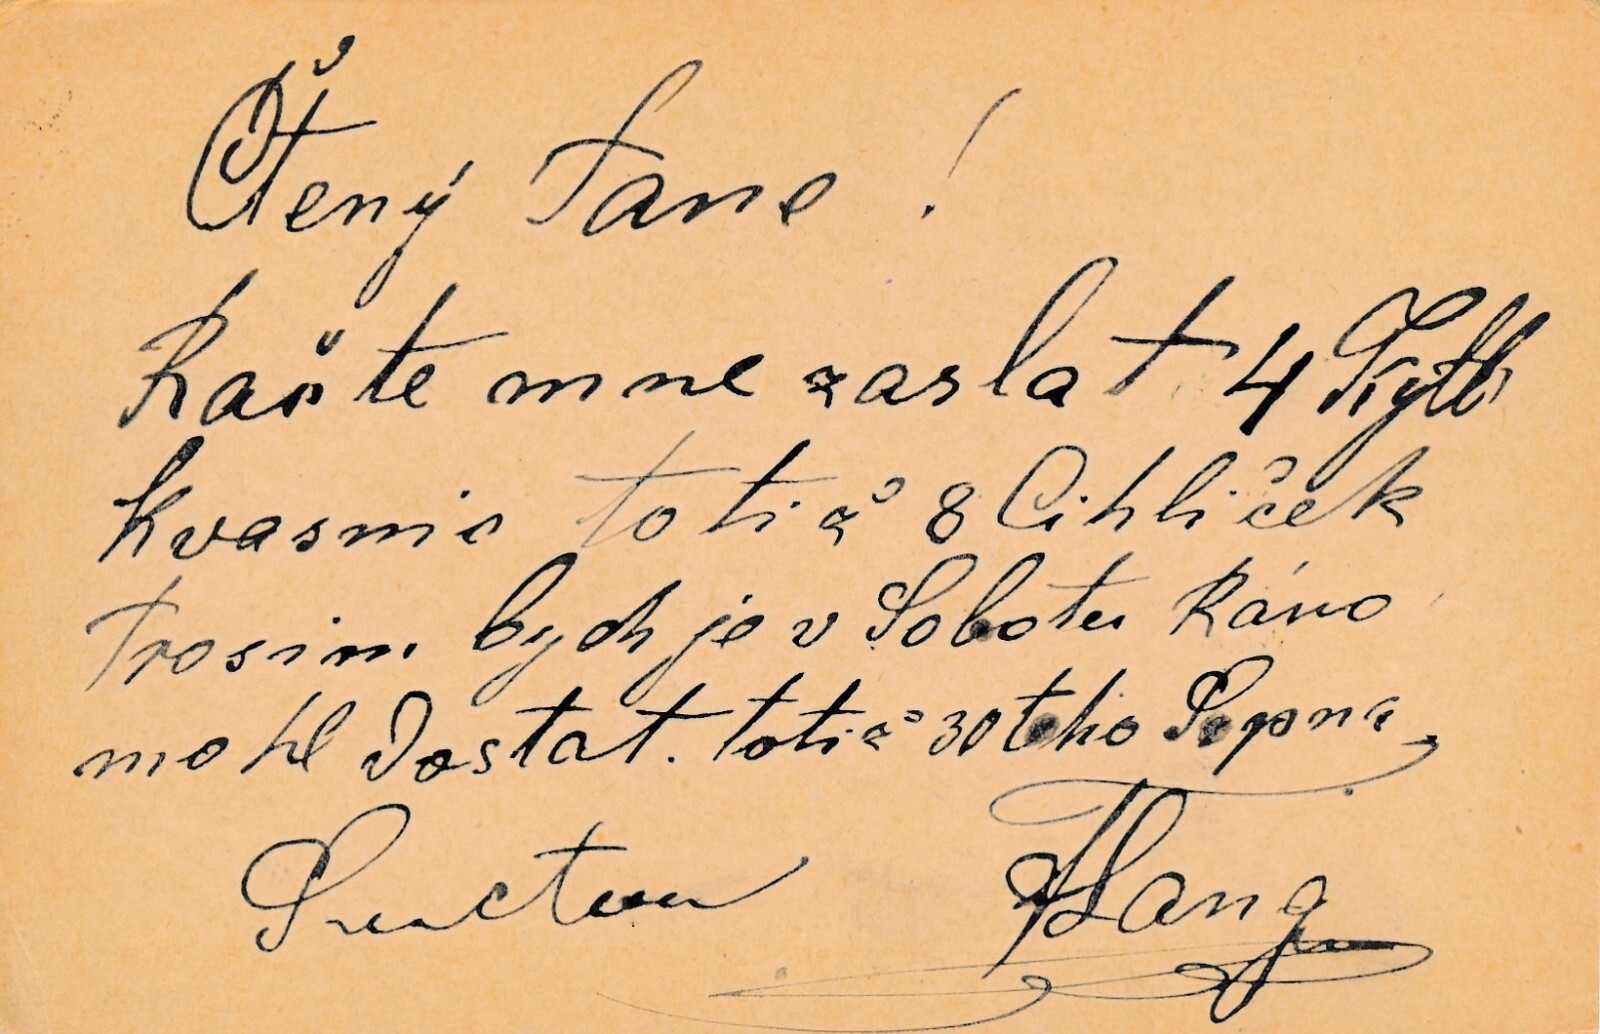 Čtený Pane!
Račte mne zaslat 4 Kylo
kvasnic totiž 8 Cihliček
Prosim. bych je v Sobotu Ráno
mohl Dostat. totiž 30 teho Srpna
S učtou
Lang